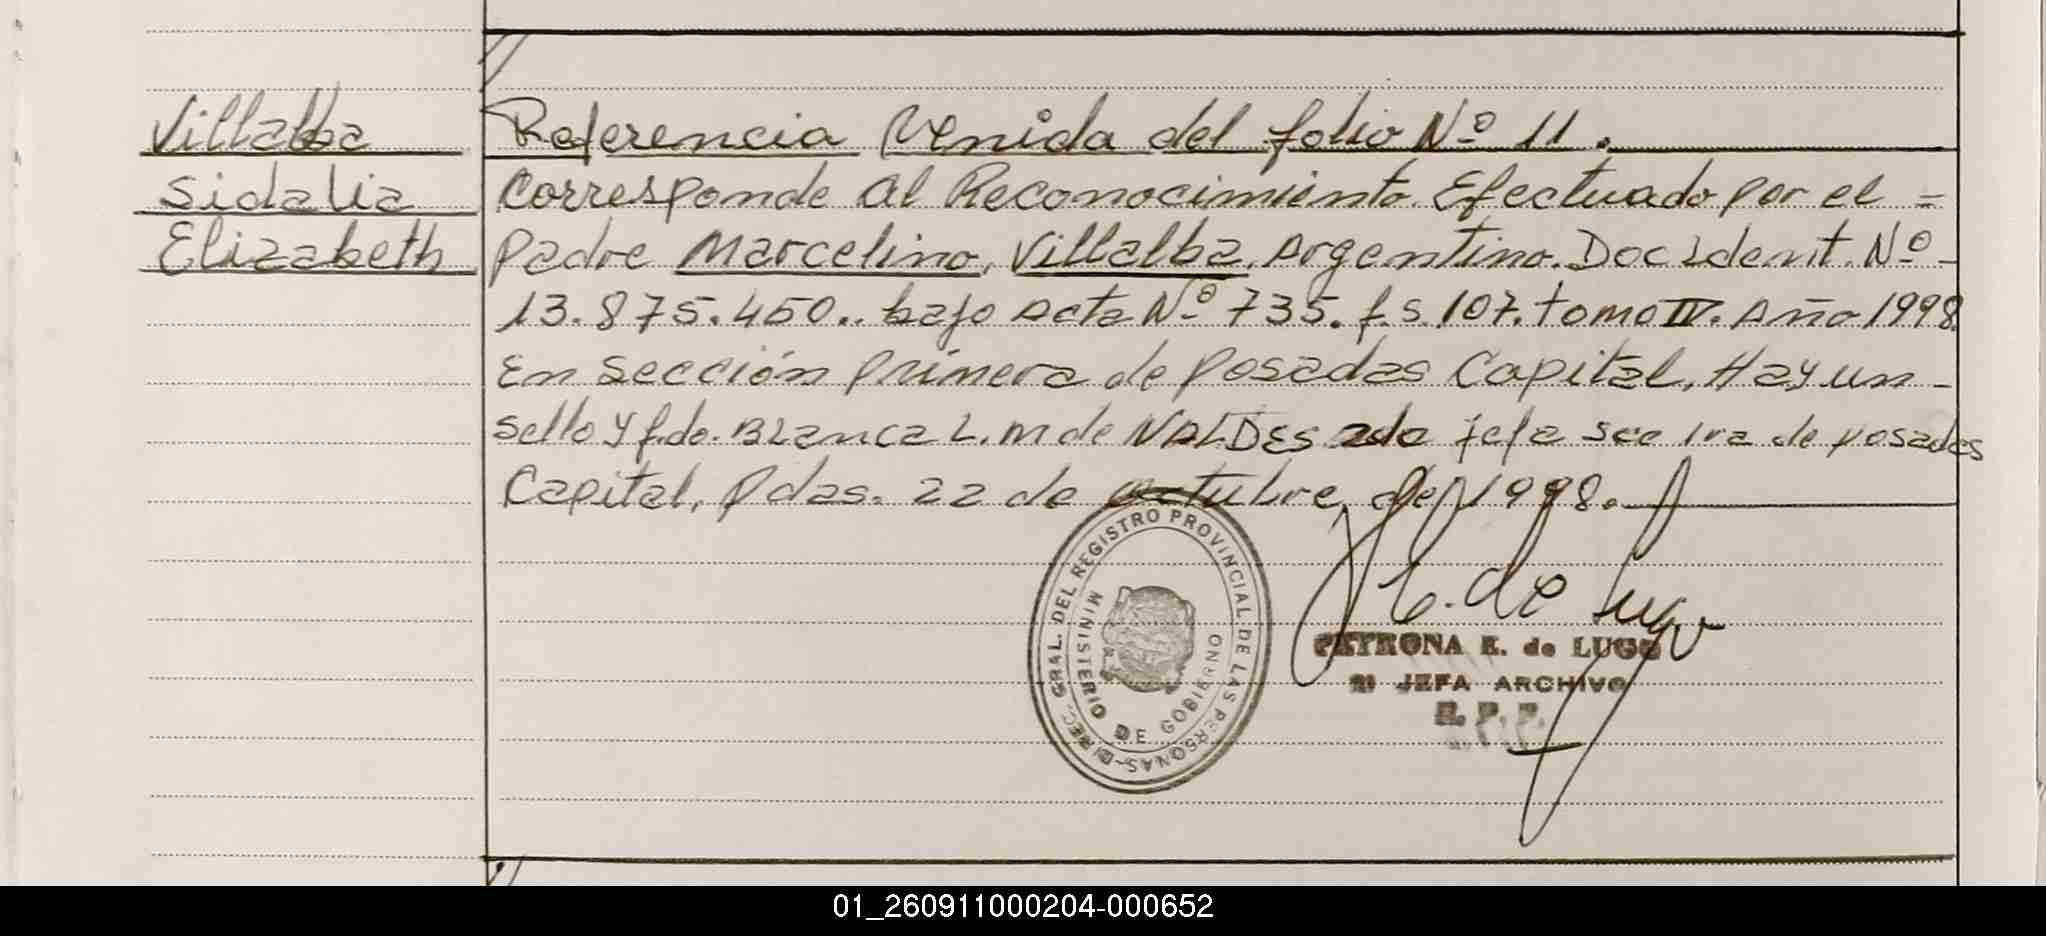 Villalba
Sidalia
Elizabeth
Referencia Venida del folio Nº 11.
Corresponde al Reconocimiento Efectuado por el =
padre Marcelino, Villalba, Argentino. Doc Ident. Nº -
13.875.450.. bajo acta Nº 735. f.s. 107. tomo IV. Año 1998.
En sección primera de Posadas Capital, Hay un -
sello y fdo. Blanca L. M de VALDES 2da jefa sec 1ra de posadas
Capital, Pdas. 22 de octubre de 1998.
DIREC. GRAL. DEL REGISTRO PROVINCIAL DE LAS PERSONAS-
MINISTERIO DE GOBIERNO
E. de Lugo
PETRONA E. de LUGO
JEFA ARCHIVO
R. P. P.
01_260911000204-000652